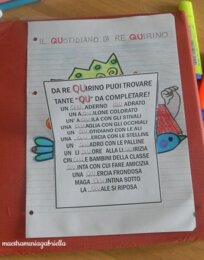 IL QUOTIDIANO DI RE QUIRINO
DA RE QUIRINO PUOI TROVARE
TANTE "QU" DA COMPLETARE!
UN QUADERNO QUADRATO
UN AQUILONE COLORATO
UN'AQUILA CON GLI STIVALI
UNA QUAGLIA CON GLI OCCHIALI
UN QUOTIDIANO CON LE ALI
UNA QUERCIA CON LE STELLINE
UN QUADRO CON LE PALLINE
UN LIQUORE ALLA LIQUIRIZIA
CINQUE BAMBINI DELLA CLASSE
QUINTA CON CUI FARE AMICIZIA
UNA QUERCIA FRONDOSA
MAGA QUINTINA SOTTO
LA QUALE SI RIPOSA
maestramariagabriella